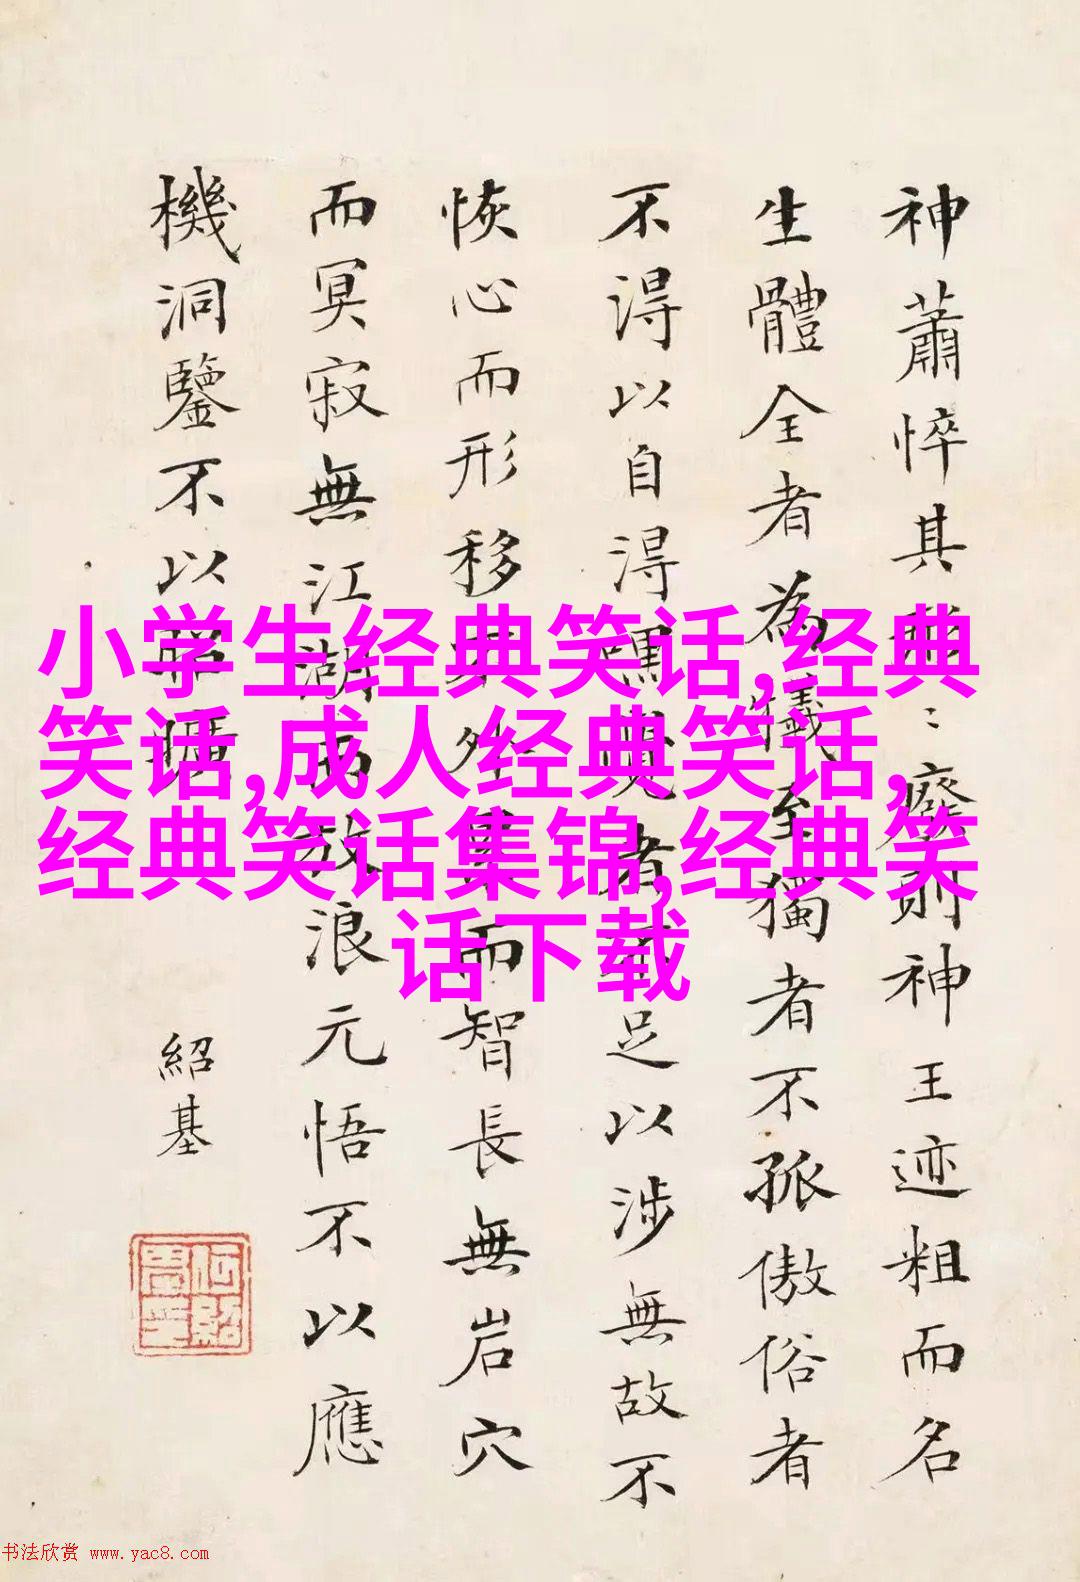 神蕭悴其形形廢則神王迹粗而名
生體全者為犧至獨者不孤傲俗者
不得以自得騳覺者不足以涉無故不
恢心而形移不外累而智長無岩穴
而冥寂無江湖而放浪元悟不以應
機洞鑒不以昭曠
紹基
小学生经典笑话,经典
笑话,成人经典笑话,
经典笑话集锦,经典笑
话下载
书法欣赏 www.yac8.com